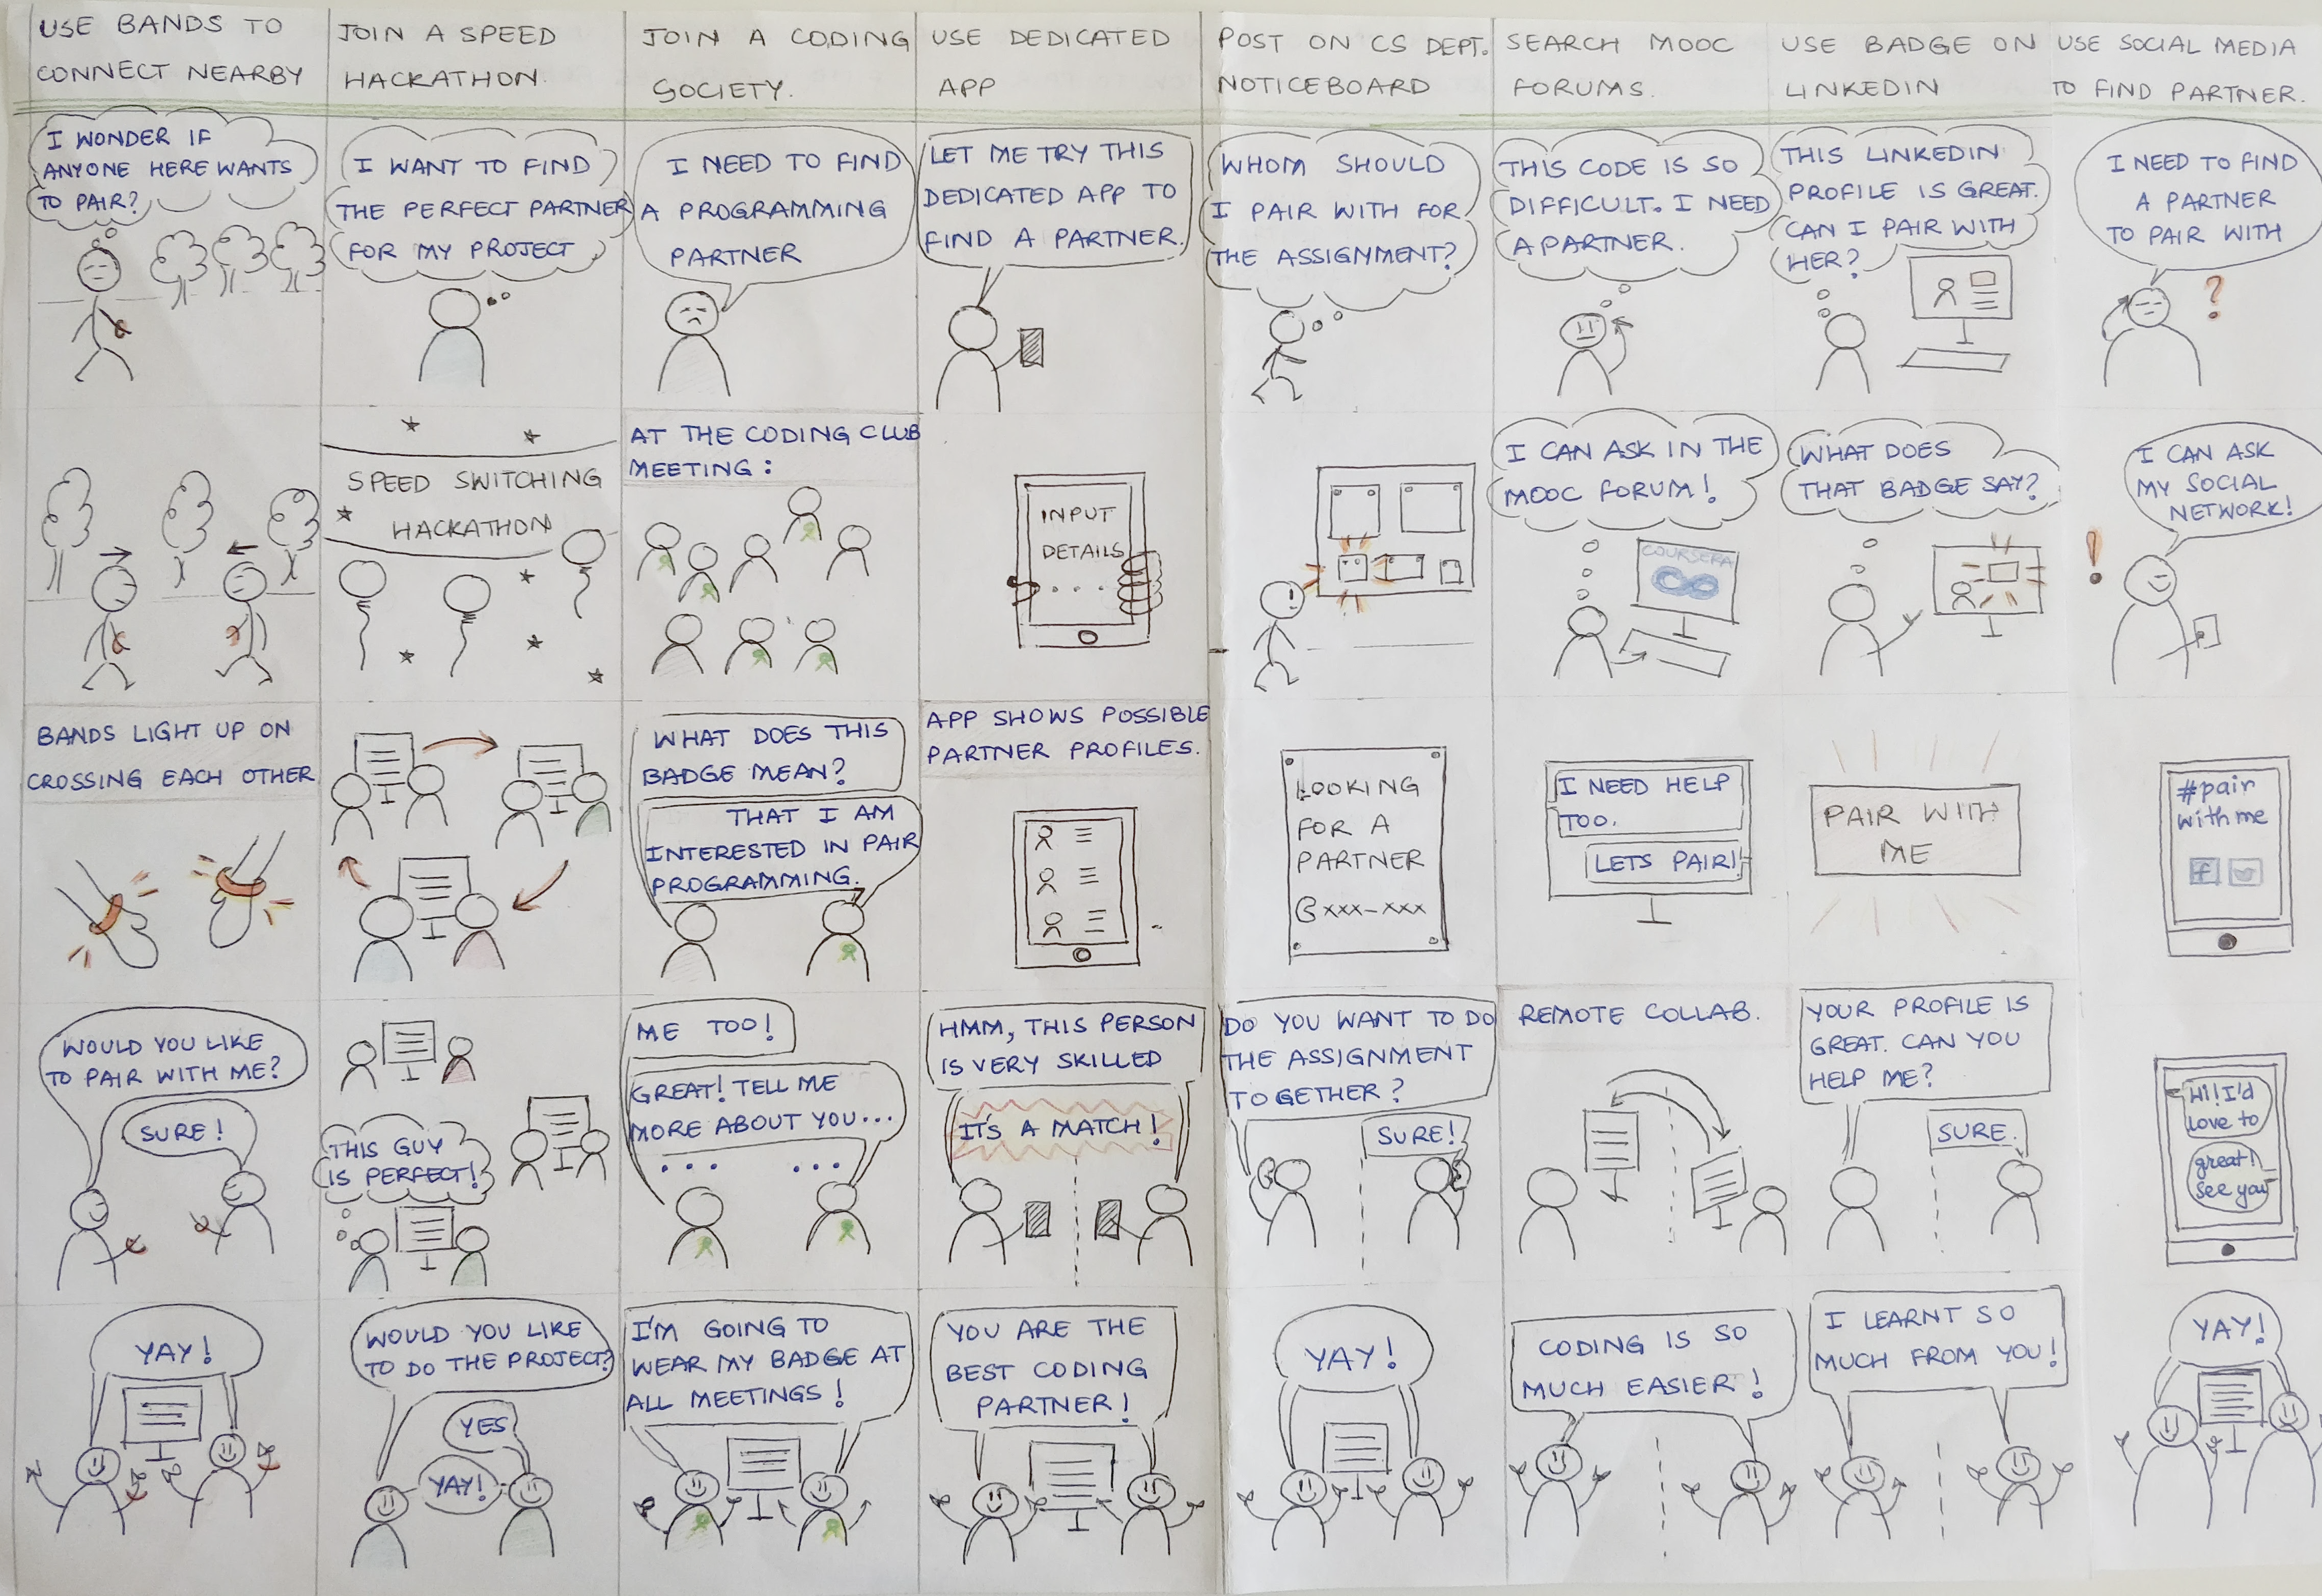 USE BANDS TO
CONNECT NEARBY
JOIN A SPEED
HACKATHON.
JOIN A CODING
SOCIETY.
USE DEDICATED
APP
POST ON CS DEPT.
NOTICEBOARD
SEARCH MOOC
FORUMS.
USE BADGE ON
LINKEDIN
USE SOCIAL MEDIA
TO FIND PARTNER.
I WONDER IF
ANYONE HERE WANTS
TO PAIR?
I WANT TO FIND
THE PERFECT PARTNER
FOR MY PROJECT
I NEED TO FIND
A PROGRAMMING
PARTNER
LET ME TRY THIS
DEDICATED APP TO
FIND A PARTNER.
WHOM SHOULD
I PAIR WITH FOR
THE ASSIGNMENT?
THIS CODE IS SO
DIFFICULT. I NEED
A PARTNER.
THIS LINKEDIN
PROFILE IS GREAT.
CAN I PAIR WITH
HER?
I NEED TO FIND
A PARTNER
TO PAIR WITH
?
SPEED SWITCHING
HACKATHON
AT THE CODING CLUB
MEETING:
INPUT
DETAILS
...
I CAN ASK IN THE
MOOC FORUM!
COURSERA
WHAT DOES
THAT BADGE SAY?
I CAN ASK
MY SOCIAL
NETWORK!
!
BANDS LIGHT UP ON
CROSSING EACH OTHER
WHAT DOES THIS
BADGE MEAN?
THAT I AM
INTERESTED IN PAIR
PROGRAMMING.
APP SHOWS POSSIBLE
PARTNER PROFILES.
LOOKING
FOR A
PARTNER
xxx-xxx
I NEED HELP
TOO.
LETS PAIR!
PAIR WITH
ME
#pair
with me
f
WOULD YOU LIKE
TO PAIR WITH ME?
SURE!
THIS GUY
IS PERFECT!
ME TOO!
GREAT! TELL ME
MORE ABOUT YOU...
... ...
HMM, THIS PERSON
IS VERY SKILLED
IT'S A MATCH!
DO YOU WANT TO DO
THE ASSIGNMENT
TOGETHER?
SURE!
REMOTE COLLAB.
YOUR PROFILE IS
GREAT. CAN YOU
HELP ME?
SURE.
Hi! I'd
love to
great!
see you
YAY!
WOULD YOU LIKE
TO DO THE PROJECT?
YES
YAY!
I'M GOING TO
WEAR MY BADGE AT
ALL MEETINGS!
YOU ARE THE
BEST CODING
PARTNER!
YAY!
CODING IS SO
MUCH EASIER!
I LEARNT SO
MUCH FROM YOU!
YAY!